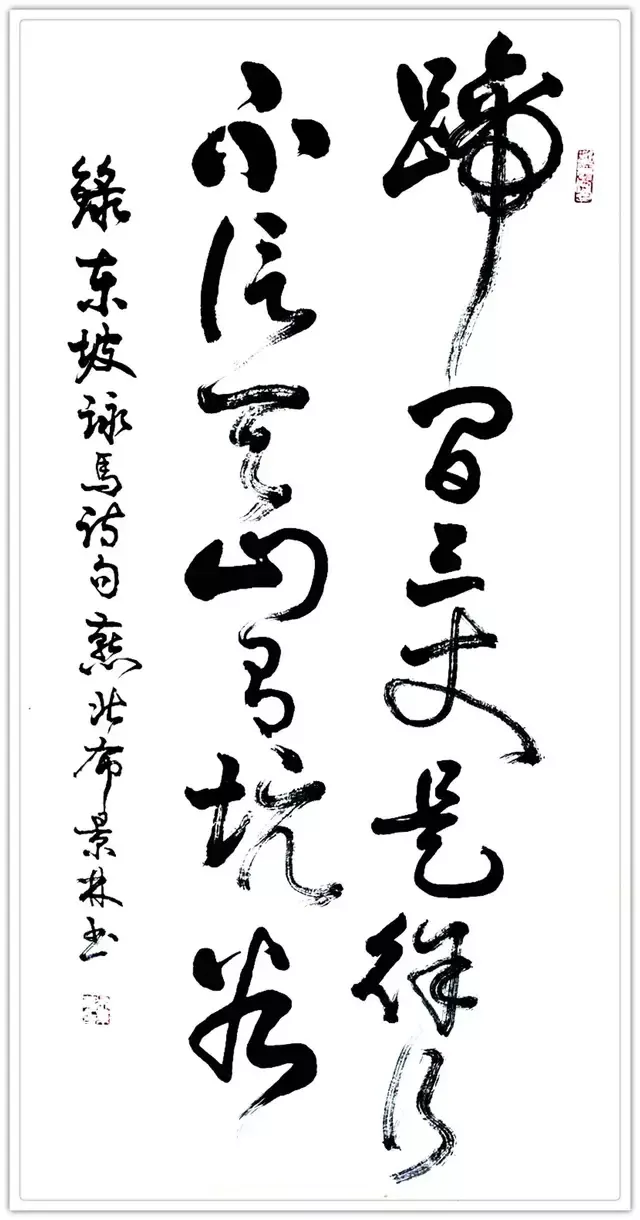 蹄间三丈是徐行
不信天山有坑谷
錄东坡詠馬诗句燕北布景林书